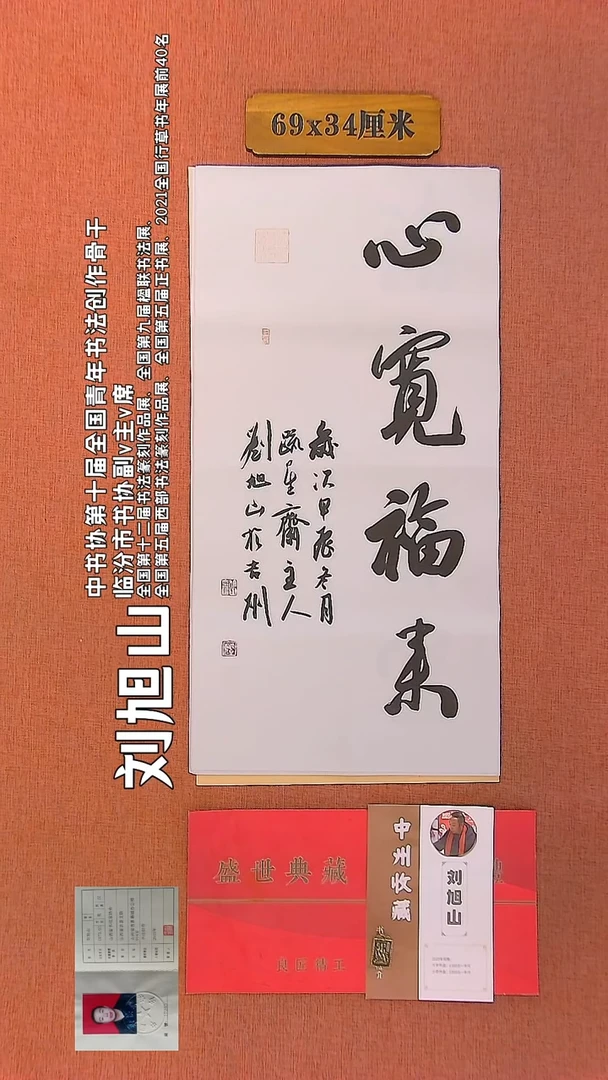 69x34厘米
心寬福来
歲次甲辰冬月
疏星齋主人
劉旭山於吉州
中书协第十届全国青年书法创作骨干
临汾市书协副v主v席
全国第十二届书法篆刻作品展、全国第九届楹联书法展、
全国第五届西部书法篆刻作品展、全国第五届正书展、2021全国行草书年展前40名
刘旭山
盛世典藏
中州收藏
刘旭山